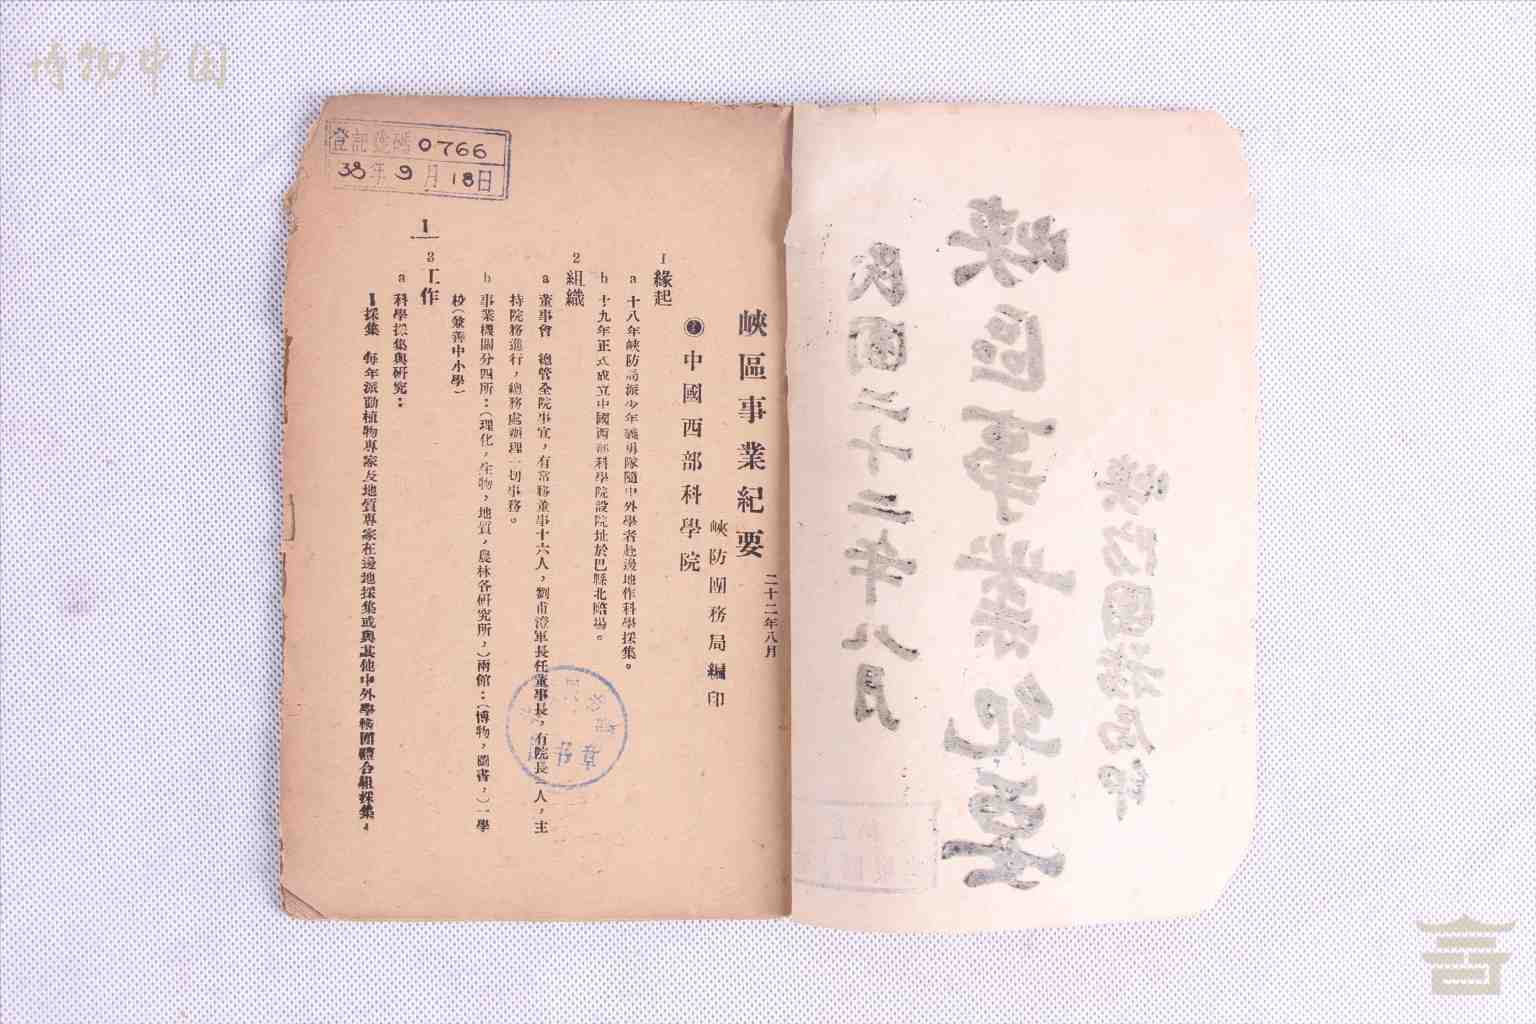 博物中国
登記號碼 0766
38年9月18日
峽區事業紀要 二十二年八月
峽防團務局編印
中國西部科學院
1 緣起
a 十八年峽防局派少年義勇隊隨中外學者赴邊地作科學採集。
b 十九年正式成立中國西部科學院設院址於巴縣北碚場。
2 組織
a 董事會 總管全院事宜，有常務董事十六人，劉甫澄軍長任董事長，有院長一人，主
持院務進行，總務處辦理一切事務。
b 事業機關分四所：（理化，生物，地質，農林各研究所，）兩館：（博物，圖書，）一學
校（兼善中小學）
3 工作
a 科學採集與研究：
1 採集 每年派動植物專家及地質專家在邊地採集或與其他中外學術團體合組採集。
1
峽防團務局印
峽區事業紀要
民國二十二年八月